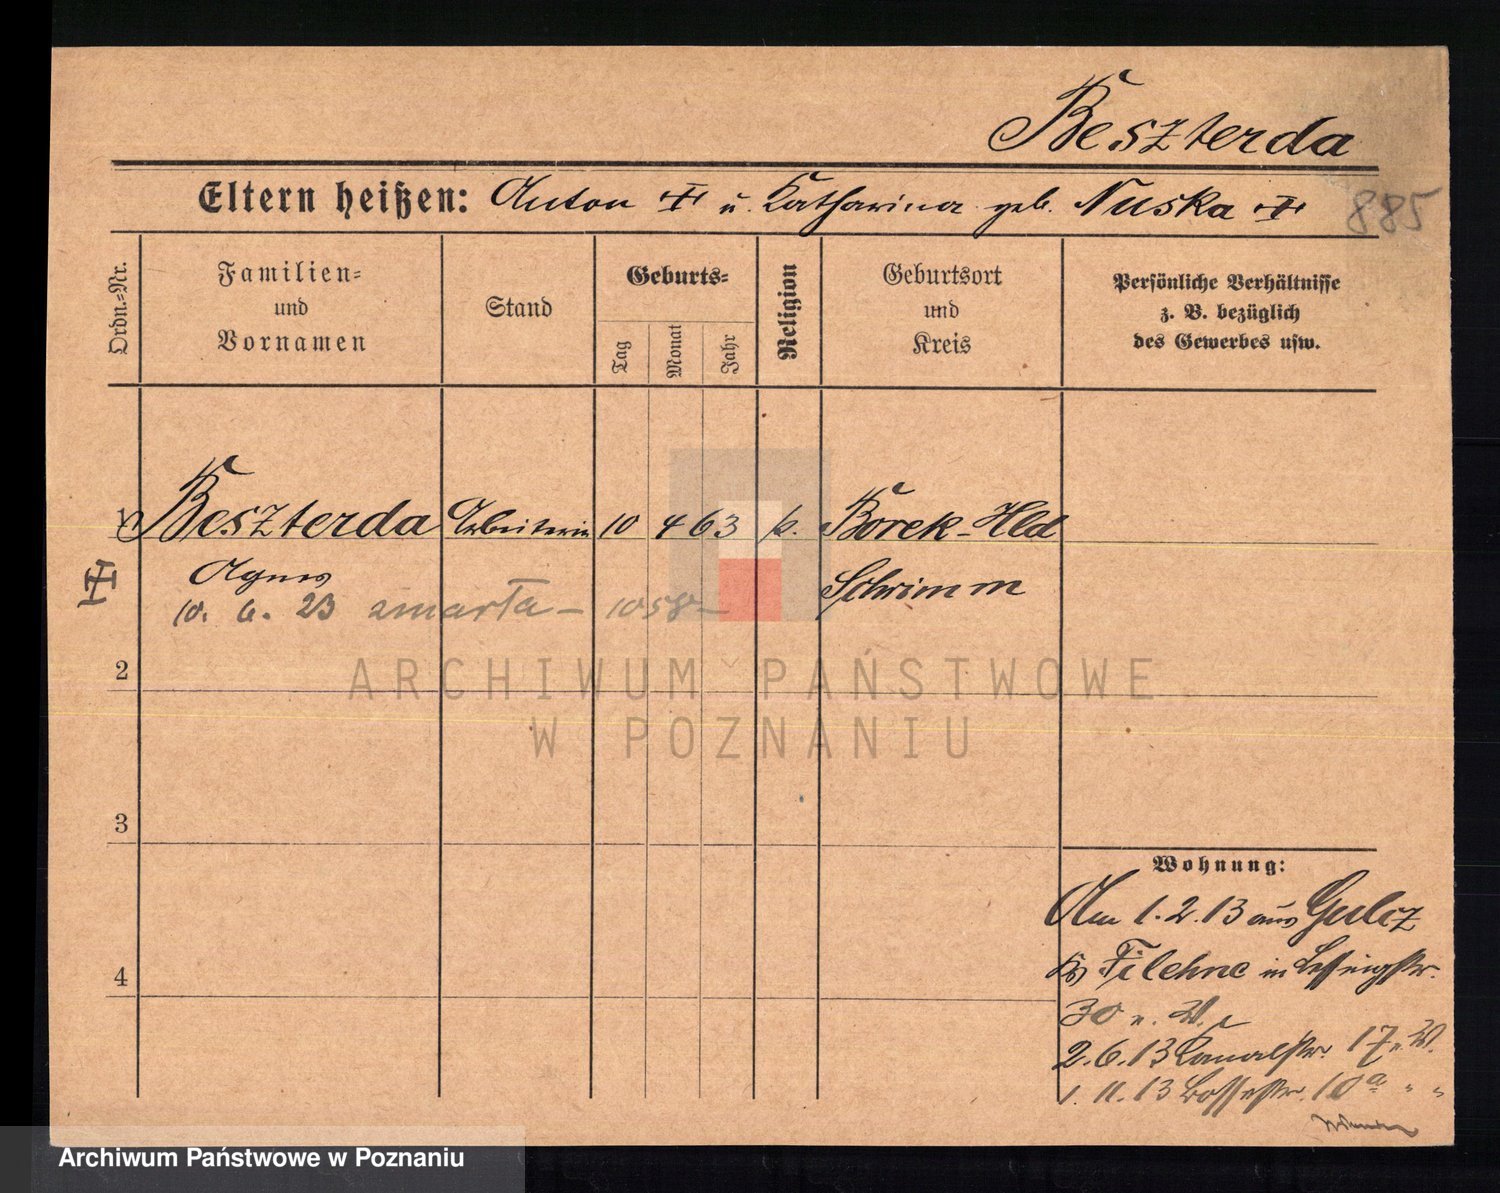 Beszterda
Eltern heißen: Anton u. Katharina geb. Nuska
885
Ordn.=Nr.
Familien=
und
Vornamen
Stand
Geburts=
Tag
Monat
Jahr
Religion
Geburtsort
und
Kreis
Persönliche Verhältnisse
z. B. bezüglich
des Gewerbes usw.
1 Beszterda Arbeiterin 10 4 63 k. Borek-Hld
Agnes Schrimm
10. 6. 23 zmarła - 1058-
2
3
4
Wohnung:
Am 1.2.13 aus Gulcz
Kr Filehne in Lessingstr.
30 n. W.
2.6.13 Kanalstr. 17 n. W.
1.11.13 Bossestr. 10a " "
ARCHIWUM PAŃSTWOWE
W POZNANIU
Archiwum Państwowe w Poznaniu